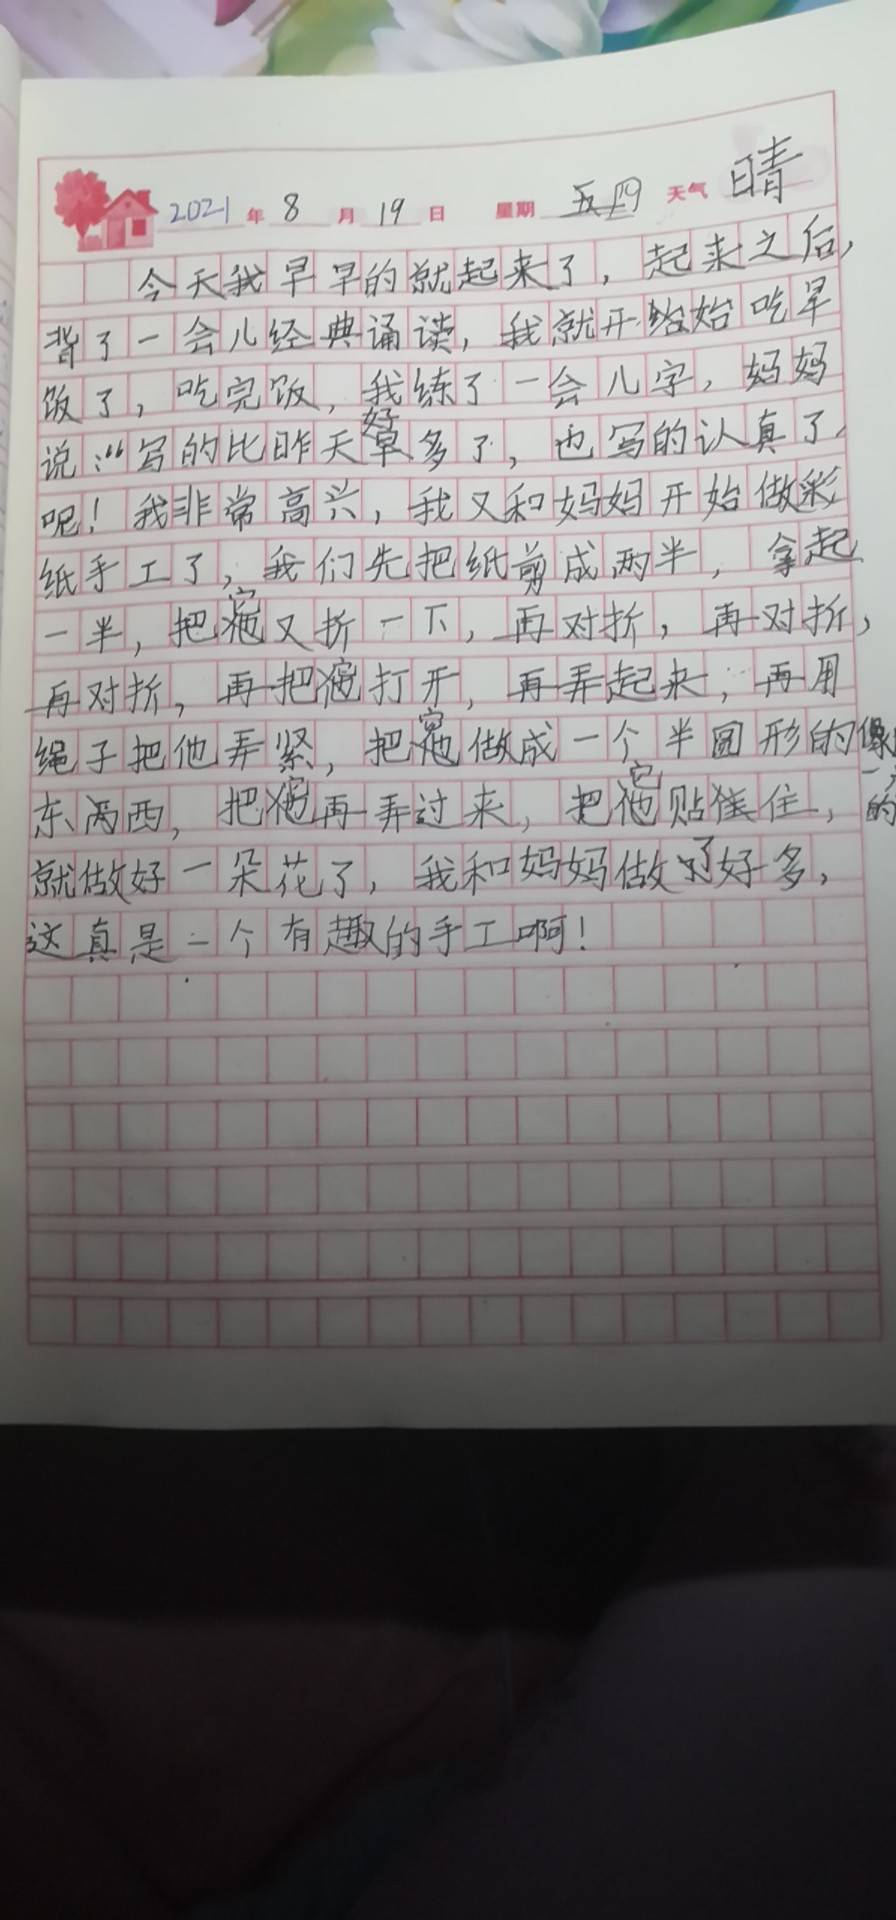 2021年 8 月 19 日 星期 四 天气 晴
今天我早早的就起来了，起来之后，
背了一会儿经典诵读，我就开始吃早
饭了，吃完饭，我练了一会儿字，妈妈
说：“写的比昨天好多了，也写的认真了
呢！我非常高兴，我又和妈妈开始做彩
纸手工了，我们先把纸剪成两半，拿起
一半，把它又折一下，再对折，再对折，
再对折，再把它打开，再弄起来，再用
绳子把他弄紧，把它做成一个半圆形的
东西，把它再弄过来，把它贴住，
就做好一朵花了，我和妈妈做了好多，
这真是一个有趣的手工啊！